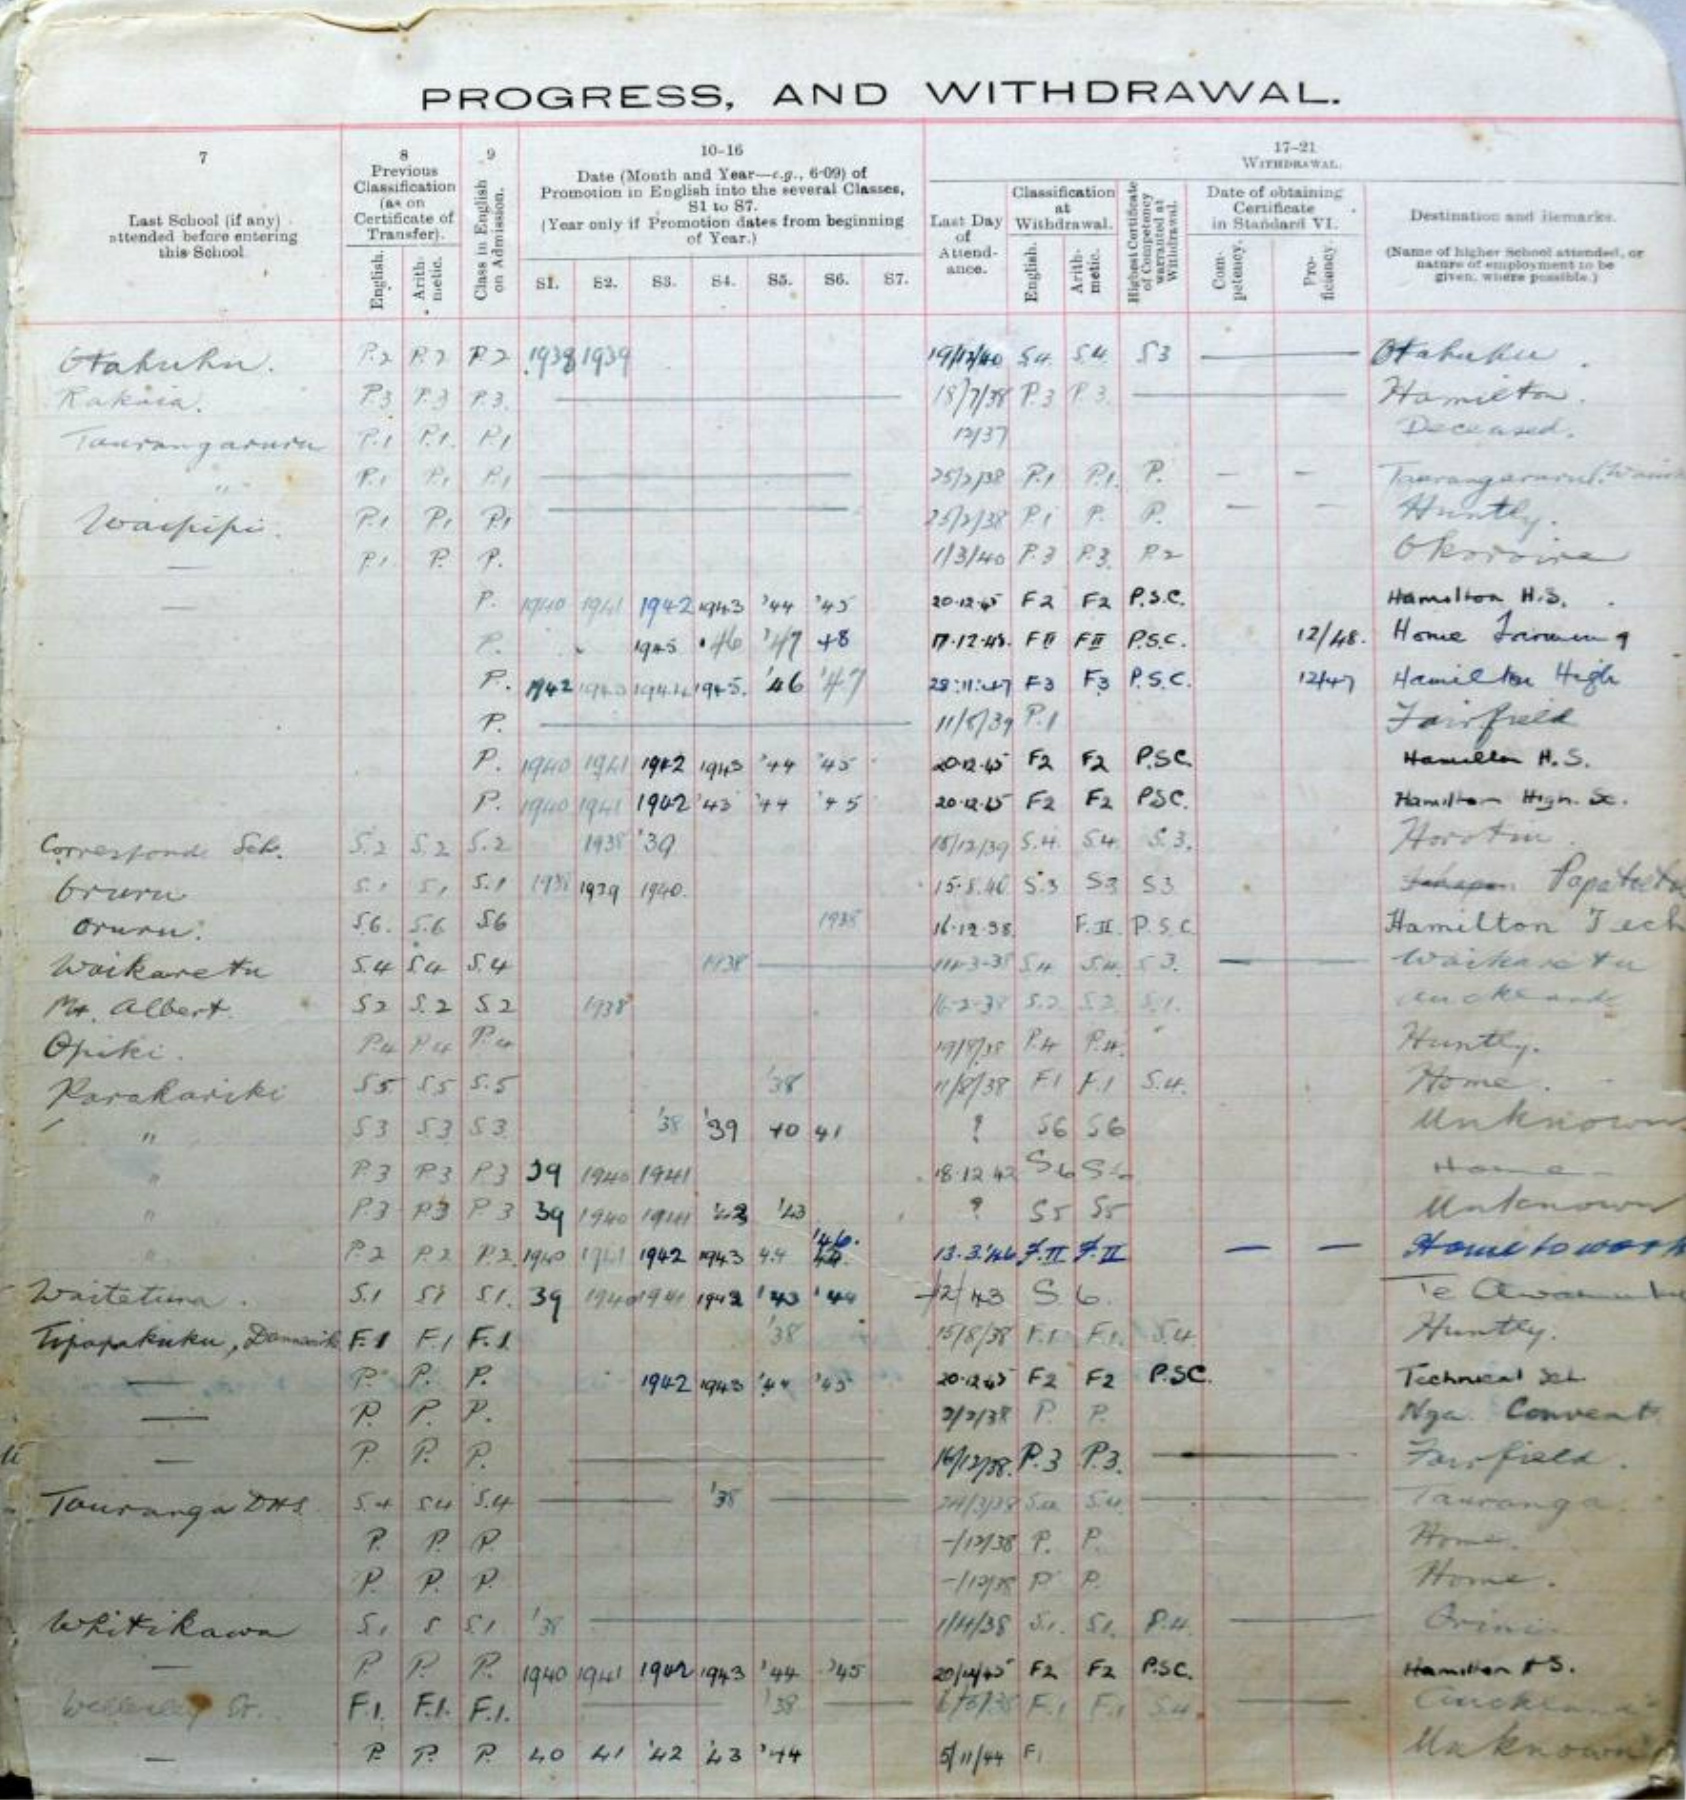 PROGRESS, AND WITHDRAWAL.
7
Last School (if any) attended before entering this School
8
Previous Classification (as on Certificate of Transfer).
English.
Arithmetic.
9
Class in English on Admission.
10-16
Date (Month and Year—e.g., 6-09) of Promotion in English into the several Classes, S1 to S7.
(Year only if Promotion dates from beginning of Year.)
S1. S2. S3. S4. S5. S6. S7.
17-21
WITHDRAWAL.
Last Day of Attendance.
Classification at Withdrawal.
English.
Arithmetic.
Highest Certificate of Competency warranted at Withdrawal.
Date of obtaining Certificate in Standard VI.
Competency.
Proficiency.
Destination and Remarks.
(Name of higher School attended, or nature of employment to be given, where possible.)
Otahuhu. P.2 P.2 P.2 1938 1939 19/12/40 S4. S.4. S3 — Otahuhu
Rakaia. P.3 P.3 P.3. — 18/7/38 P.3 P.3. — Hamilton.
Taurangaruru P.1 P.1. P.1 12/37 Deceased.
" P.1 P.1 P.1 — 25/2/38 P.1 P.1. P. — — Taurangaruru
Waipipi. P.1 P.1 P.1 — 25/2/38 P.1 P. P. — — Huntly.
— P.1. P. P. 1/3/40 P.3 P.3. P.2 Okoroire
— P. 1940 1941 1942 1943 '44 '45 20.12.45 F2 F2 P.S.C. Hamilton H.S.
P. 1945 '46 '47 48 17.12.48. F II F II P.S.C. 12/48. Home Farming
P. 1942 1943 1944 1945. '46 '47 28.11.47 F3 F3 P.S.C. 12/47 Hamilton High
P. — 11/8/39 P.1 Fairfield
P. 1940 1941 1942 1943 '44 '45 20.12.45 F2 F2 P.S.C Hamilton H.S.
P. 1940 1941 1942 '43 '44 '45 20.12.45 F2 F2 P.S.C. Hamilton High. Sc.
Correspond. Sch. S.2 S.2 S.2 1938 '39 18/12/39 S.4. S4. S.3. Horotiu.
Oruru S.1 S.1 S.1 1938 1939 1940. 15.8.40 S.3 S3 S3
Oruru. S.6. S.6 S6 1938 16.12.38. F.II. P.S.C. Hamilton Tech
Waikaretu S.4 S4 S.4 1938 — S4 S.4. S3. — Waikaretu
Mt. Albert. S2 S.2 S2 1938 16-2-38 S.2 S2 S.1. Auckland
Opiki. P.4 P4 P.4 19/8/38 P.4 P.4. Huntly.
Parakariki S5 S5 S.5 '38 11/8/38 F.1 F.1 S.4. Home.
" S3 S3 S3. '38 '39 40 41 ? S6 S6 Unknown
" P.3 P3 P.3 39 1940 1941 18.12.42 S6 S6 Home
" P3 P3 P3 39 1940 1941 '42 '43 ? S5 S5 Unknown
" P.2 P.2 P.2. 1940 1941 1942 1943 44 '46. 13.3.'46 F.II F.II — — Home to work
Waitetuna. S.1 S1 S1. 39 1940 1941 1942 '43 '44 12/43 S6. Te Awamutu
F.1 F.1 F.1 '38 15/8/38 F.1. F.1. S.4 Huntly.
— P. P. P. 1942 1943 '44 '45 20.12.45 F2 F2 P.S.C. Technical Sch
— P. P. P. 2/2/38 P. P. Nga. Convent
— P. P. P. — 16/12/38. P.3 P.3. — Fairfield.
Tauranga D.H.S. S.4 S4 S.4 — '38 — 24/3/38 S.4 S.4 — Tauranga.
P. P. P. -/12/38 P. P. Home.
P. P. P. -/12/38 P P. Home.
Whitikawa S.1 S S.1 '38 — 1/4/38 S.1. S1. P.4. — Orini
— P P. P. 1940 1941 1942 1943 '44 '45 20/12/45 F2 F2 P.S.C. Hamilton H.S.
Wellesley St. F.1. F.1. F.1. — '38 — F.1 F.1 S.4. — Auckland
— P. P. P. 40 41 '42 '43 '44 5/11/44 F1 Unknown